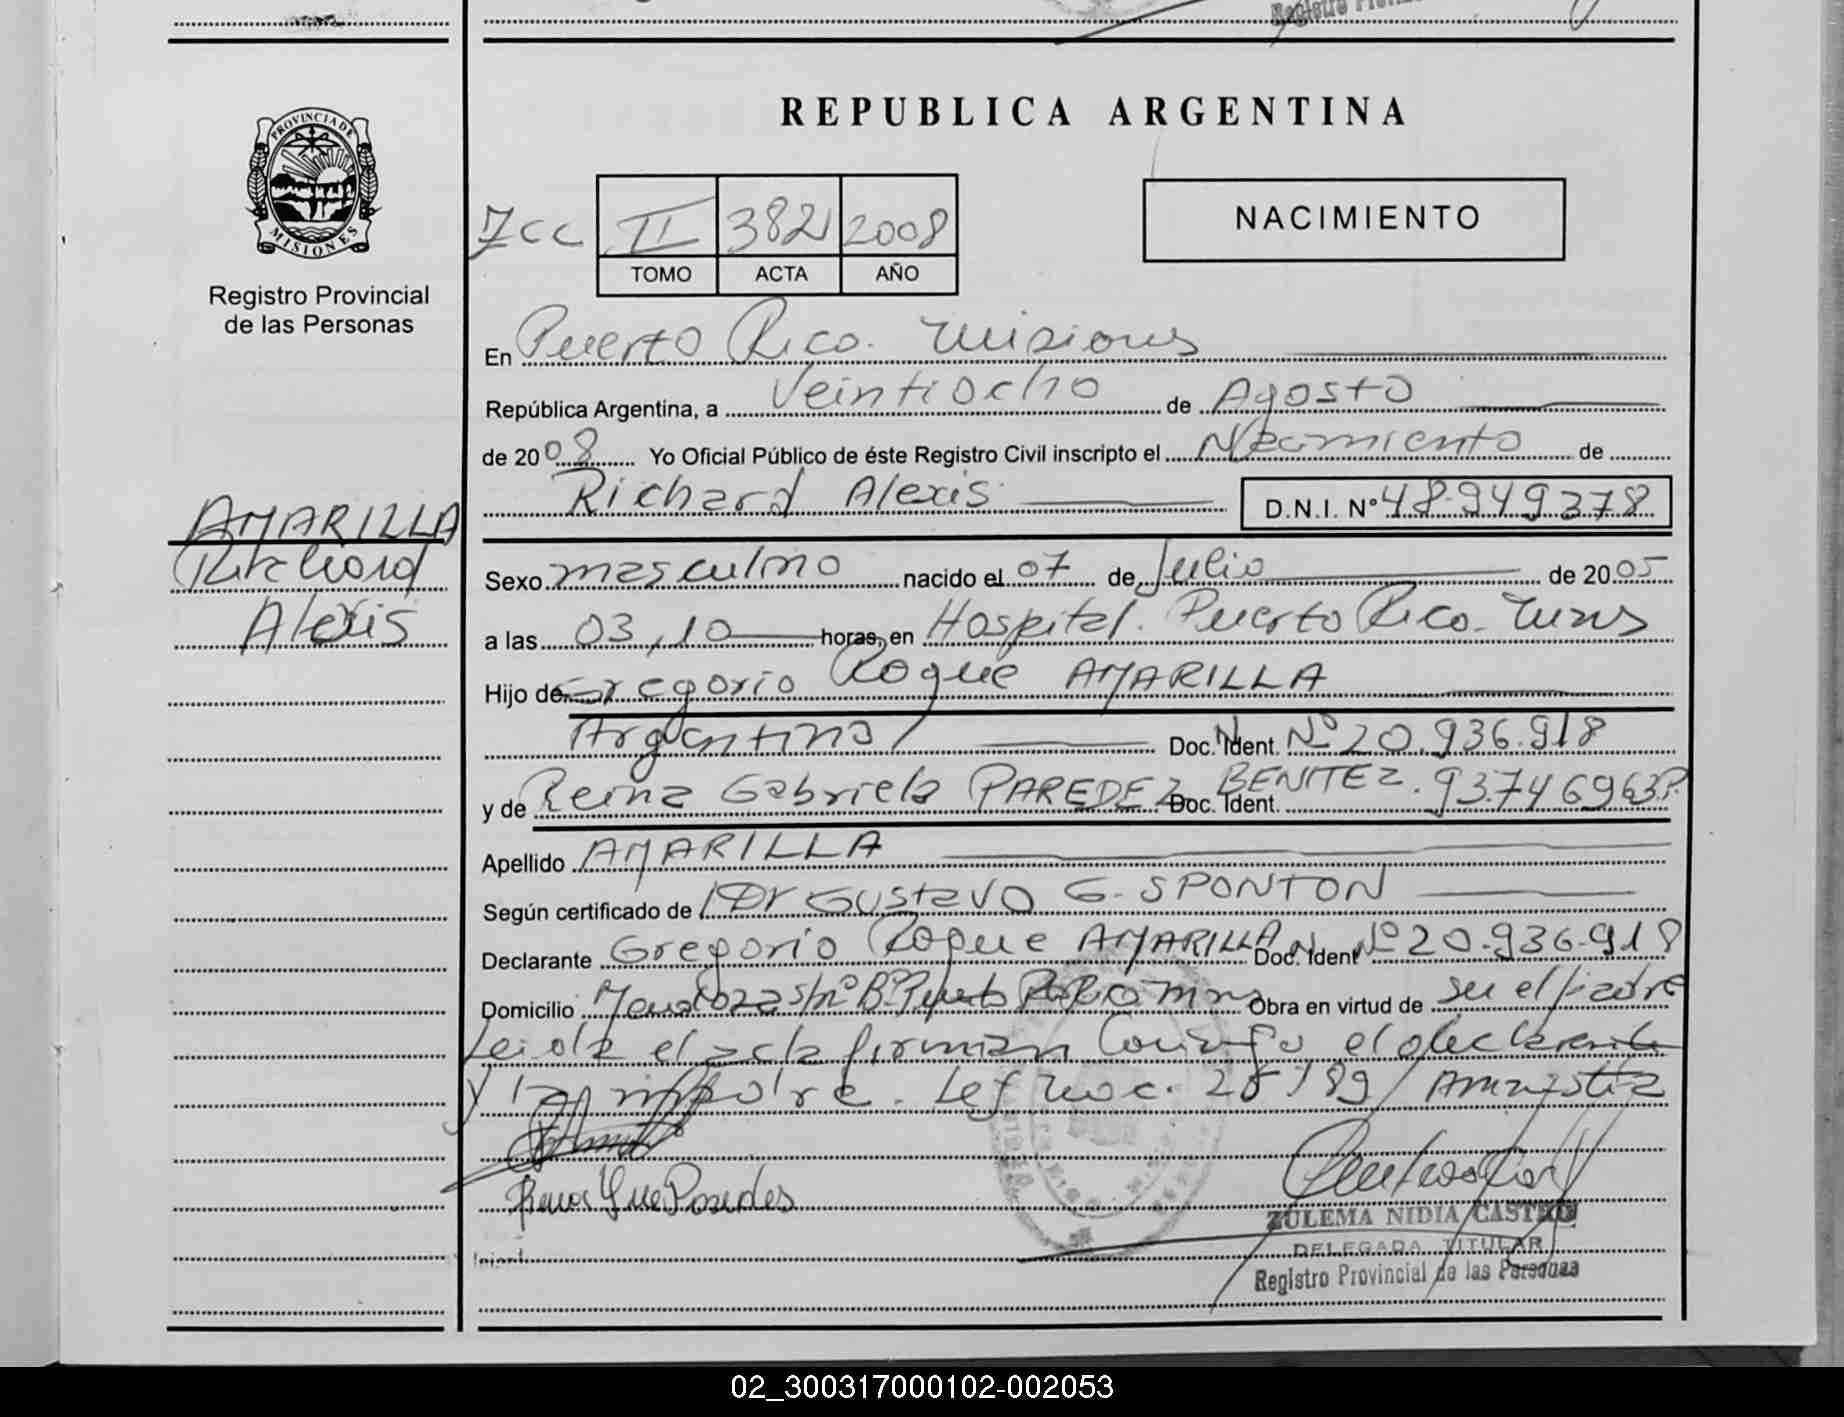 Registro Provincial
PROVINCIA DE
MISIONES
Registro Provincial
de las Personas
AMARILLA
Richard
Alexis
REPUBLICA ARGENTINA
7cc II 382 2008
TOMO ACTA AÑO
NACIMIENTO
En Puerto Rico. Misiones
República Argentina, a Veintiocho de Agosto
de 2008 Yo Oficial Público de éste Registro Civil inscripto el Nacimiento de
Richard Alexis D.N.I. Nº 48.949378
Sexo masculino nacido el 07 de Julio de 2005
a las 03,10 horas, en Hospital. Puerto Rico. Mnes
Hijo de Gregorio Roque AMARILLA
Argentino Doc. Ident. N Nº 20.936.918
y de Reina Gabriela PAREDEZ BENITEZ. Doc. Ident. 93746963P.
Apellido AMARILLA
Según certificado de Dr Gustavo G. SPONTON
Declarante Gregorio Roque AMARILLA Doc. Ident N Nº 20.936.918
Domicilio Mendoza s/nº Bº Puerto Rico Mnes Obra en virtud de ser el padre
Leida el acta firman Conmigo el declarante
y la madre. Ley Nac. 25789 Amnistia
Reina Paredes
ZULEMA NIDIA CASTRO
DELEGADA TITULAR
Registro Provincial de las Personas
02_300317000102-002053